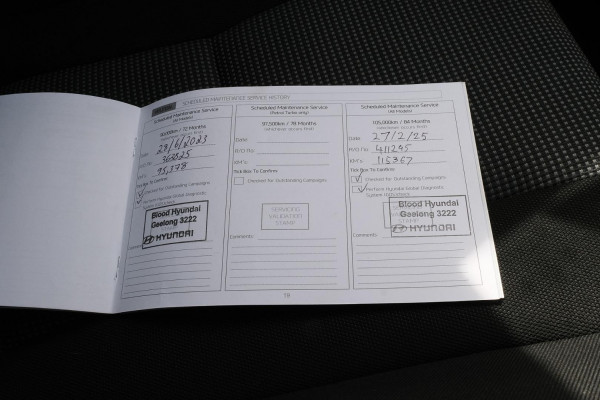 SCHEDULED MAINTENANCE SERVICE HISTORY
Scheduled Maintenance Service
(All Models)
90,000km / 72 Months
(whichever occurs first)
Date: 28/6/2023
R/O No:
KM's: 95,378
Tick Box To Confirm:
Checked for Outstanding Campaigns
Perform Hyundai Global Diagnostic
Blood Hyundai
Geelong 3222
HYUNDAI
Comments:
Scheduled Maintenance Service
(Petrol Turbo only)
97,500km / 78 Months
(whichever occurs first)
Date:
R/O No:
KM's:
Tick Box To Confirm:
Checked for Outstanding Campaigns
SERVICED
VALIDATION
STAMP
Comments:
Scheduled Maintenance Service
(All Models)
105,000km / 84 Months
(whichever occurs first)
Date: 27/2/25
R/O No: 411245
KM's: 115367
Tick Box To Confirm:
Checked for Outstanding Campaigns
Perform Hyundai Global Diagnostic
Blood Hyundai
Geelong 3222
HYUNDAI
Comments: